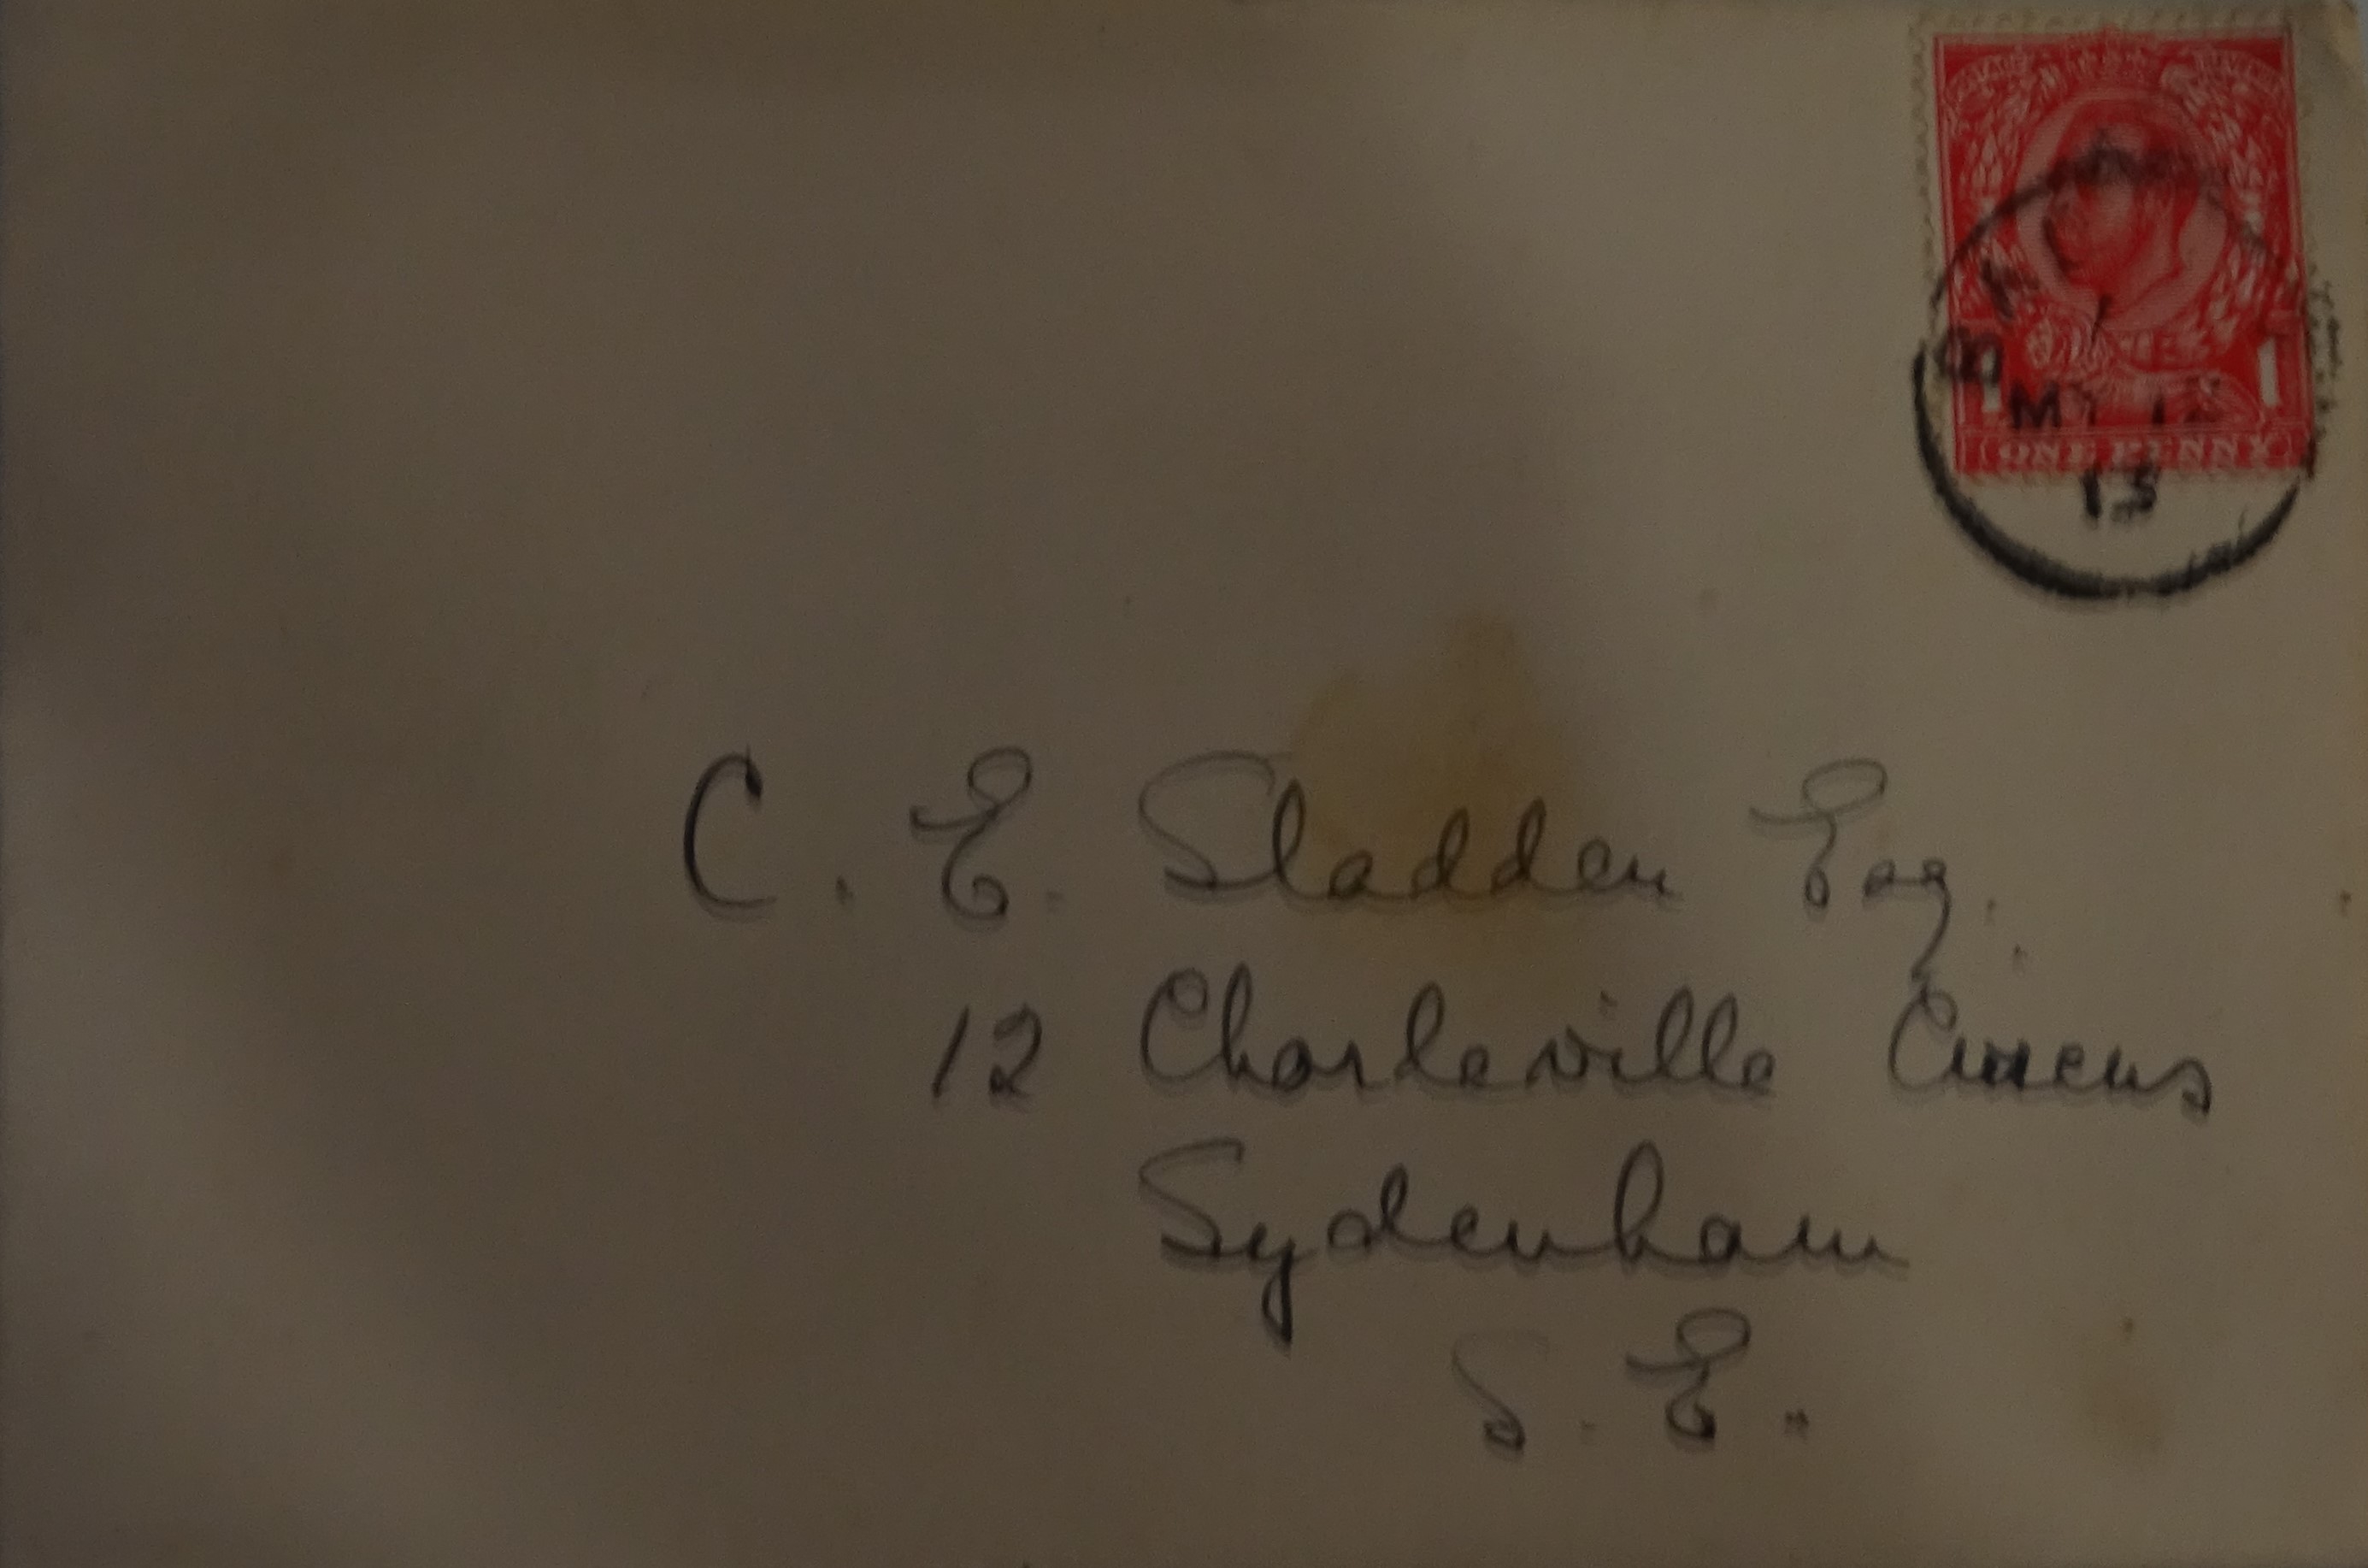 ONE PENNY
1 1
13
C. E. Sladden Esq.
12 Charleville Circus
Sydenham
S. E.